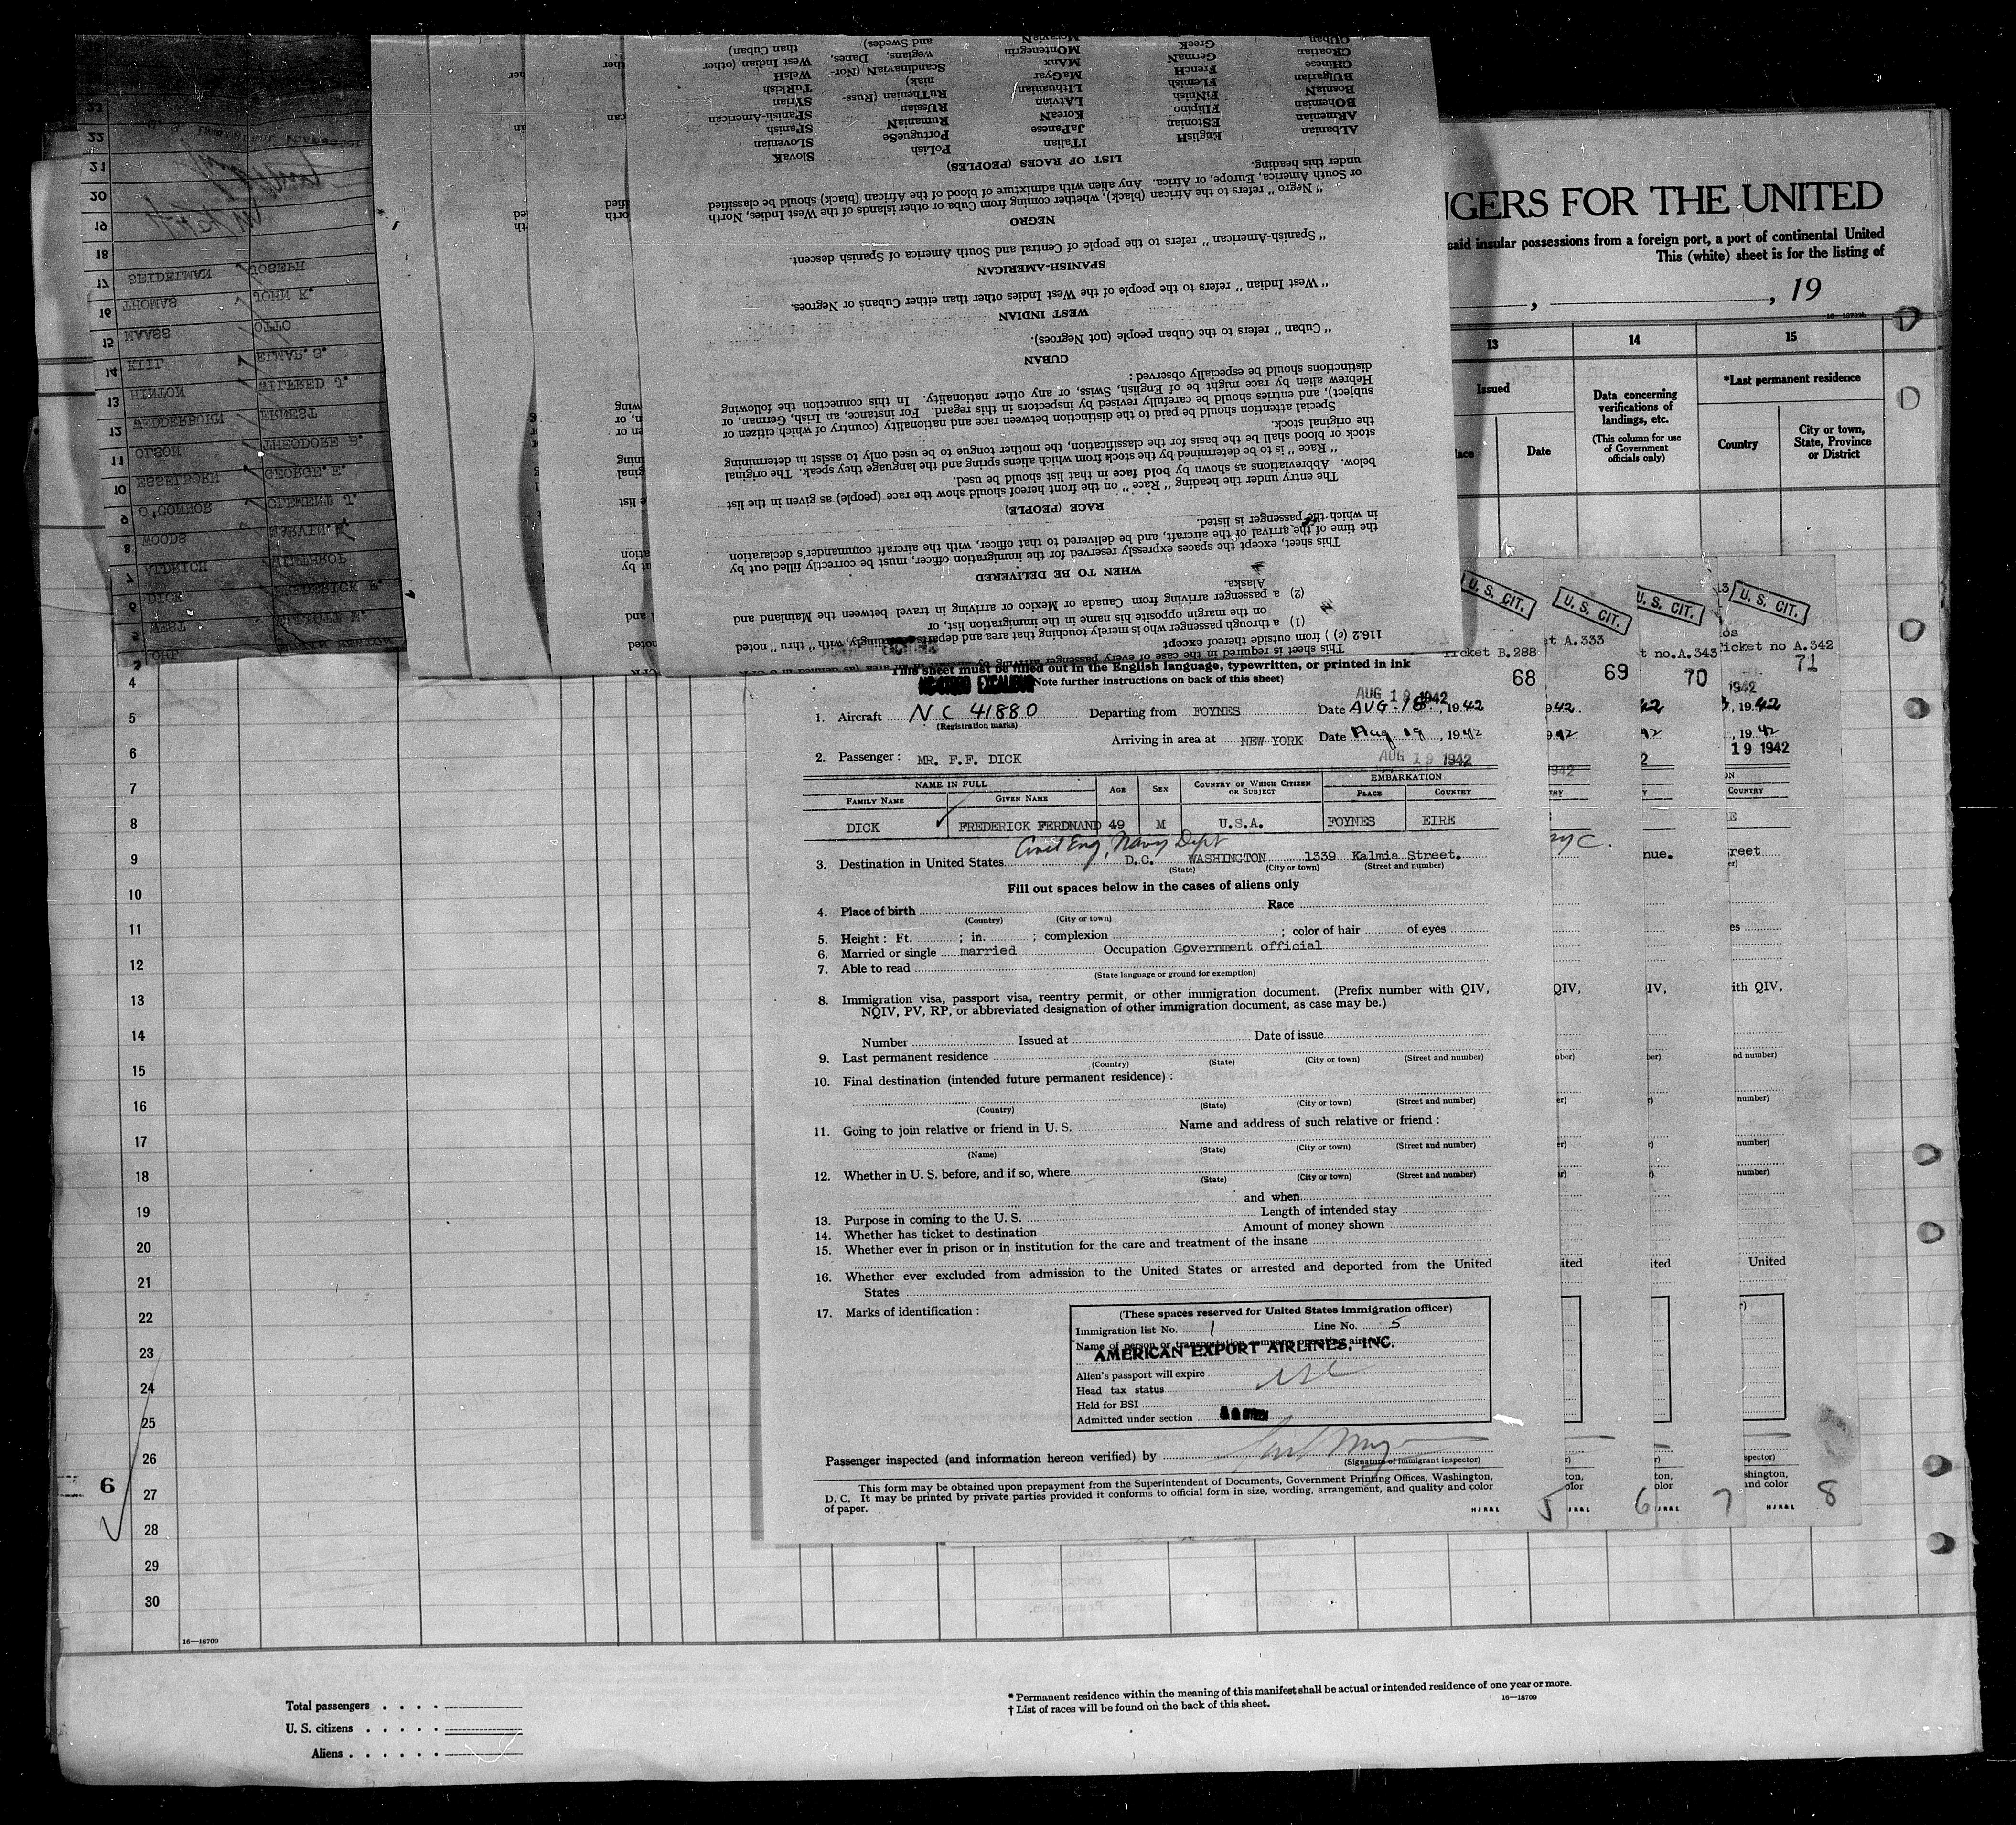 NGERS FOR THE UNITED
said insular possessions from a foreign port, a port of continental United
This (white) sheet is for the listing of
, 19
13 14 15
Issued
Data concerning verifications of landings, etc.
(This column for use of Government officials only)
*Last permanent residence
Date
Country
City or town, State, Province or District
22
21
20
19
18
17 SEIDELMAN JOSEPH
16 THOMAS JOHN K.
15 MAASS OTTO
14 KIIL ELMAR. S.
13 HINTON WILFRED J.
12 WEDDERBURN ERNEST
11 OLSON THEODORE B.
10 ESSELBORN GEORGE. E.
9 O'CONNOR CLEMENT J.
8 WOODS MARVIN.
7 ALDRICH WINTHROP
6 DICK FREDERICK F.
5 WEST ELLIOTT
This sheet is required in the case of every passenger arriving by
116.2 (c) ) from outside thereof except
(1) a through passenger who is merely touching that area and departs accordingly, with "thru" noted
on the margin opposite his name in the immigration list, or
(2) a passenger arriving from Canada or Mexico or arriving in travel between the Mainland and
Alaska.
WHEN TO BE DELIVERED
This sheet, except the spaces expressly reserved for the immigration officer, must be correctly filled out by
the time of the arrival of the aircraft, and be delivered to that officer, with the aircraft commander's declaration
in which the passenger is listed.
RACE (PEOPLE)
The entry under the heading "Race" on the front hereof should show the race (people) as given in the list
below. Abbreviations as shown by bold face in that list should be used.
"Race" is to be determined by the stock from which aliens spring and the language they speak. The original
stock or blood shall be the basis for the classification, the mother tongue to be used only to assist in determining
the original stock.
Special attention should be paid to the distinction between race and nationality (country of which citizen or
subject), and entries should be carefully revised by inspectors in this regard. For instance, an Irish, German, or
Hebrew alien by race might be of English, Swiss, or any other nationality. In this connection the following
distinctions should be especially observed:
CUBAN
"Cuban" refers to the Cuban people (not Negroes).
WEST INDIAN
"West Indian" refers to the people of the West Indies other than either Cubans or Negroes.
SPANISH-AMERICAN
"Spanish-American" refers to the people of Central and South America of Spanish descent.
NEGRO
"Negro" refers to the African (black), whether coming from Cuba or other islands of the West Indies, North
or South America, Europe, or Africa. Any alien with admixture of blood of the African (black) should be classified
under this heading.
LIST OF RACES (PEOPLES)
ALbanian EnglisH ITalian PoLish SlovaK
ARmenian EStonian JaPanese PortugueSe SLovenian
BOhemian FIlipino KoreaN RumaniaN SPanisH
BosniaN FiNnish LAtvian RUssian SPanish-American
BUlgarian FLemish LIthuanian RuThenian (Russ- SYrian
CHinese FrencH MaGyar niak) TuRkish
CRoatian GermaN MAnx ScandinaviaN (Nor- WelsH
CUban GreeK MOntenegrin wegans, Danes, West Indian (other
MoraviaN and Swedes) than Cuban)
This sheet must be filled out in the English language, typewritten, or printed in ink
(Note further instructions on back of this sheet)
AUG 19 1942
1. Aircraft NC 41880 Departing from FOYNES Date AUG-18, 1942
(Registration marks)
Arriving in area at NEW YORK Date Aug 19, 1942
2. Passenger: MR. F.F. DICK AUG 19 1942
NAME IN FULL AGE SEX COUNTRY OF WHICH CITIZEN OR SUBJECT EMBARKATION
FAMILY NAME GIVEN NAME PLACE COUNTRY
DICK FREDERICK FERDNAND 49 M U.S.A. FOYNES EIRE
Civil Eng, Navy Dept
3. Destination in United States D.C. WASHINGTON 1339 Kalmia Street.
(State) (City or town) (Street and number)
Fill out spaces below in the cases of aliens only
4. Place of birth Race
(Country) (City or town)
5. Height: Ft. ; in. ; complexion ; color of hair of eyes
6. Married or single married Occupation Government official
7. Able to read
(State language or ground for exemption)
8. Immigration visa, passport visa, reentry permit, or other immigration document. (Prefix number with QIV,
NQIV, PV, RP, or abbreviated designation of other immigration document, as case may be.)
Number Issued at Date of issue
9. Last permanent residence
(Country) (State) (City or town) (Street and number)
10. Final destination (intended future permanent residence):
(Country) (State) (City or town) (Street and number)
11. Going to join relative or friend in U. S. Name and address of such relative or friend:
(Name) (State) (City or town) (Street and number)
12. Whether in U. S. before, and if so, where
(State) (City or town) (Street and number)
and when
13. Purpose in coming to the U. S. Length of intended stay
14. Whether has ticket to destination Amount of money shown
15. Whether ever in prison or in institution for the care and treatment of the insane
16. Whether ever excluded from admission to the United States or arrested and deported from the United
States
17. Marks of identification:
(These spaces reserved for United States immigration officer)
Immigration list No. 1 Line No. 5
Name of person or transportation company operating aircraft
AMERICAN EXPORT AIRLINES, INC.
Alien's passport will expire
Head tax status
Held for BSI
Admitted under section
Passenger inspected (and information hereon verified) by
(Signature of immigrant inspector)
This form may be obtained upon prepayment from the Superintendent of Documents, Government Printing Offices, Washington,
D. C. It may be printed by private parties provided it conforms to official form in size, wording, arrangement, and quality and color
of paper.
U. S. CIT. U. S. CIT. U. S. CIT. U. S. CIT.
Ticket B.288 t A.333 t no.A.343 Ticket no A.342
68 69 70 71
5 6 7 8
4
5
6
7
8
9
10
11
12
13
14
15
16
17
18
19
20
21
22
23
24
25
26
6
27
28
29
30
16—18709
Total passengers
U. S. citizens
Aliens
* Permanent residence within the meaning of this manifest shall be actual or intended residence of one year or more.
† List of races will be found on the back of this sheet.
16—18709